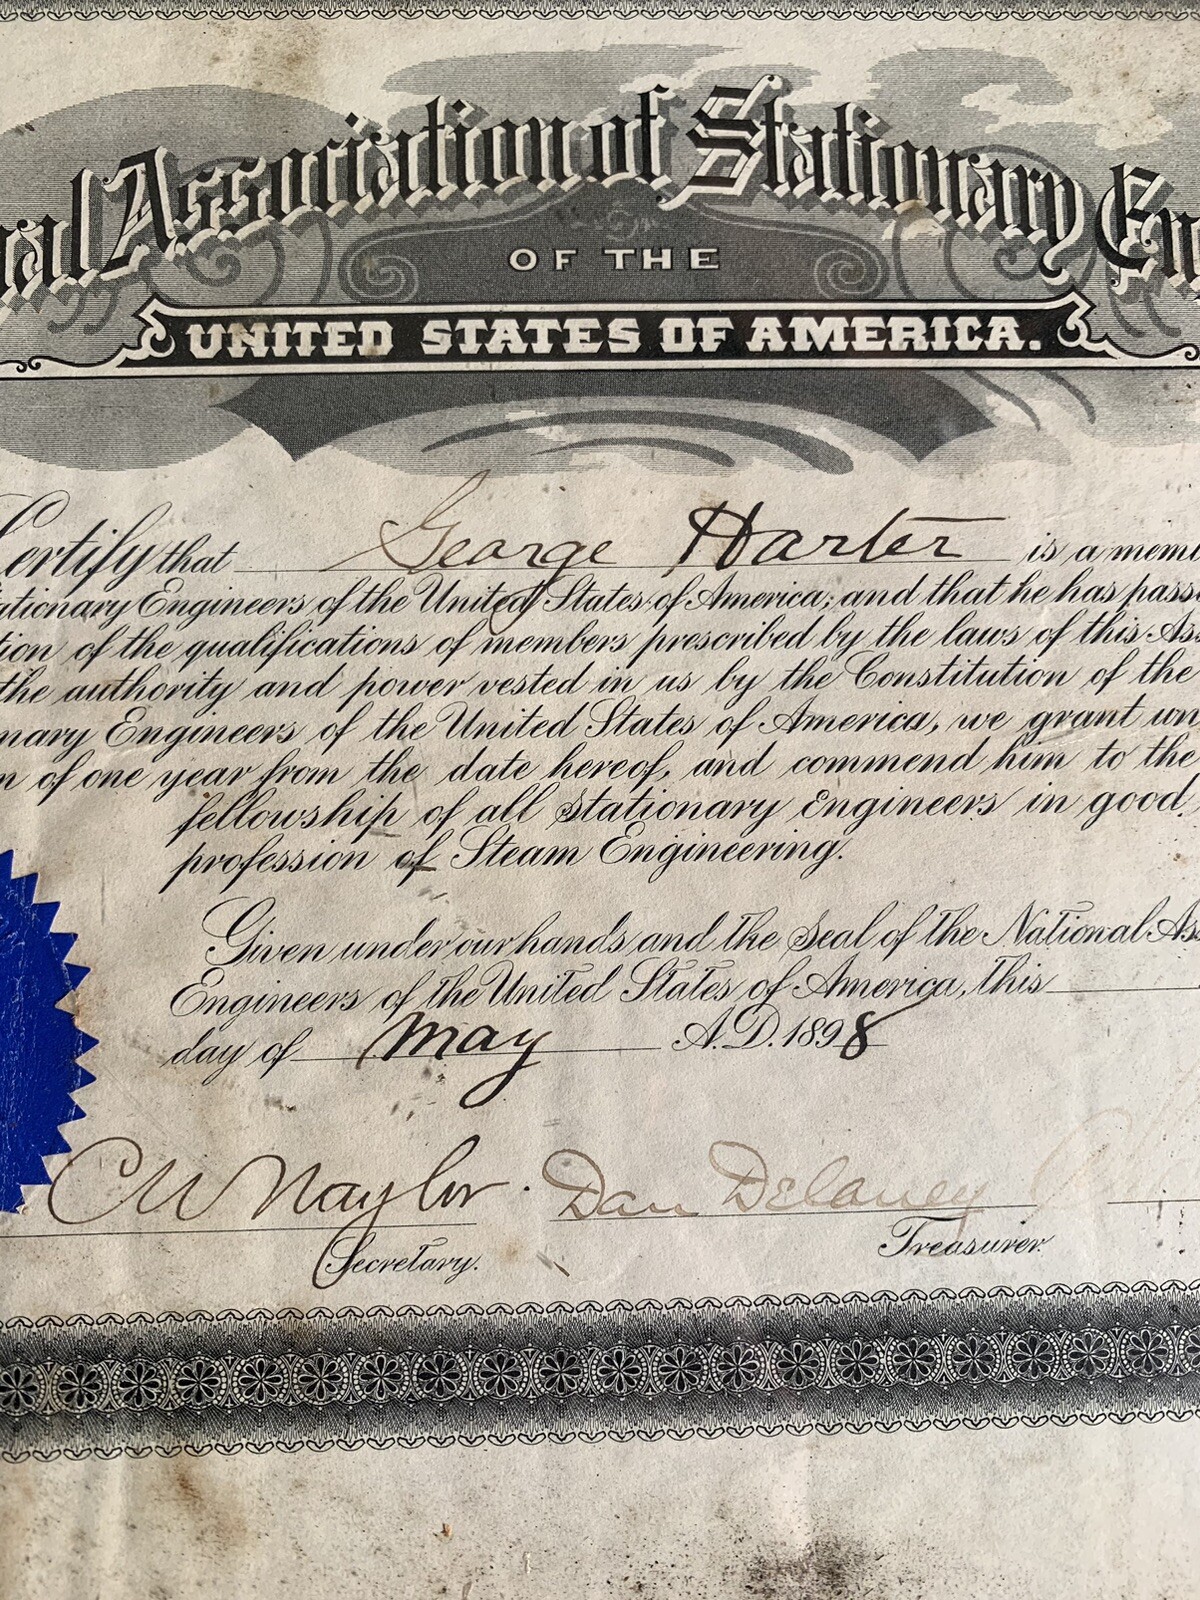 nal Association of Stationary En
OF THE
UNITED STATES OF AMERICA.
Certify that George Harter is a mem
ationary Engineers of the United States of America; and that he has pass
tion of the qualifications of members prescribed by the laws of this Ass
the authority and power vested in us by the Constitution of the
nary Engineers of the United States of America, we grant un
m of one year from the date hereof, and commend him to the
fellowship of all Stationary Engineers in good
profession of Steam Engineering.
Given under our hands and the Seal of the National Ass
Engineers of the United States of America, this
day of May A.D. 1898
C W Naylor Dan Delaney
Secretary. Treasurer.